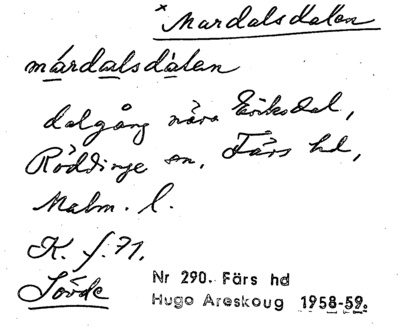 × Mardalsdalen
márdalsdálen
dalgång nära Eriksdal,
Röddinge sn, Färs hd,
Malm. l.
K. f. 71.
Sövde
Nr 290. Färs hd
Hugo Areskoug 1958-59.